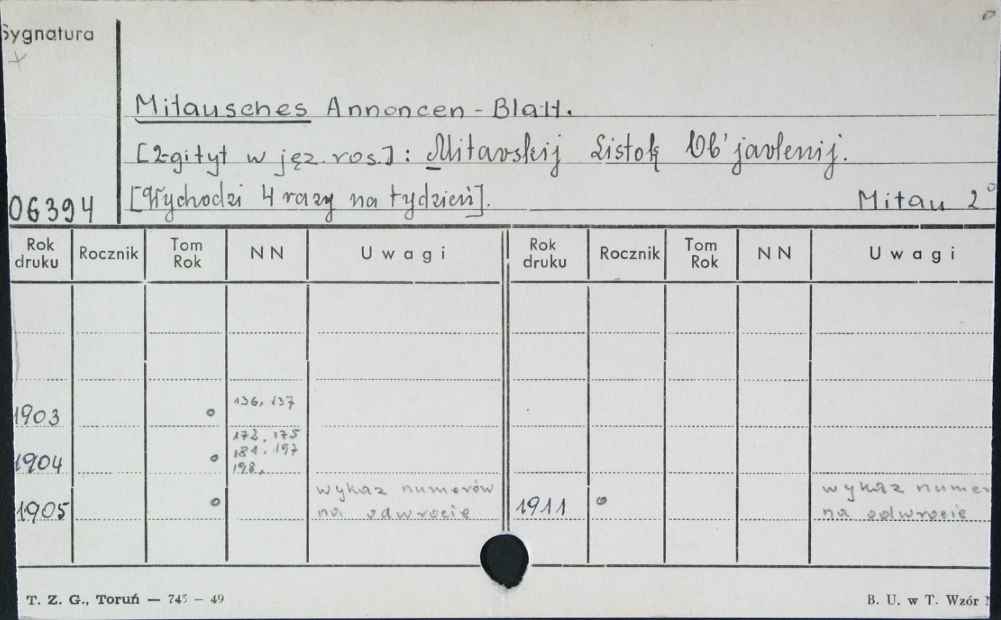 Sygnatura
Mitausches Annoncen-Blatt.
[2-gi tyt w jęz. ros.]: Mitavskij Listok Ob'javlenij.
[Wychodzi 4 razy na tydzień].
Mitau 2°
06394
Rok druku Rocznik Tom Rok NN Uwagi Rok druku Rocznik Tom Rok NN Uwagi
1903 o 136, 137
1904 o 172, 175
181, 197
198,
1905 o wykaz numerów 1911 o wykaz numer
na odwrocie na odwrocie
T. Z. G., Toruń — 745 — 49
B. U. w T. Wzór